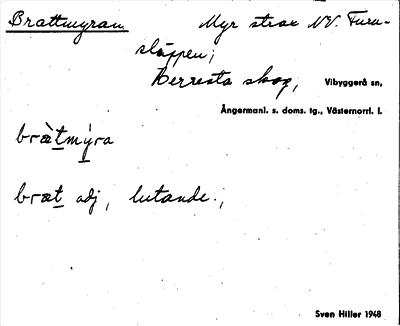 Brattmyran Myr strax NV. Furu-
släppen;
Berresta skog, Vibyggerå sn,
Ångermanl. s. doms. tg., Västernorrl. l.
bràtmýra
brat adj, lutande.,
Sven Hiller 1948